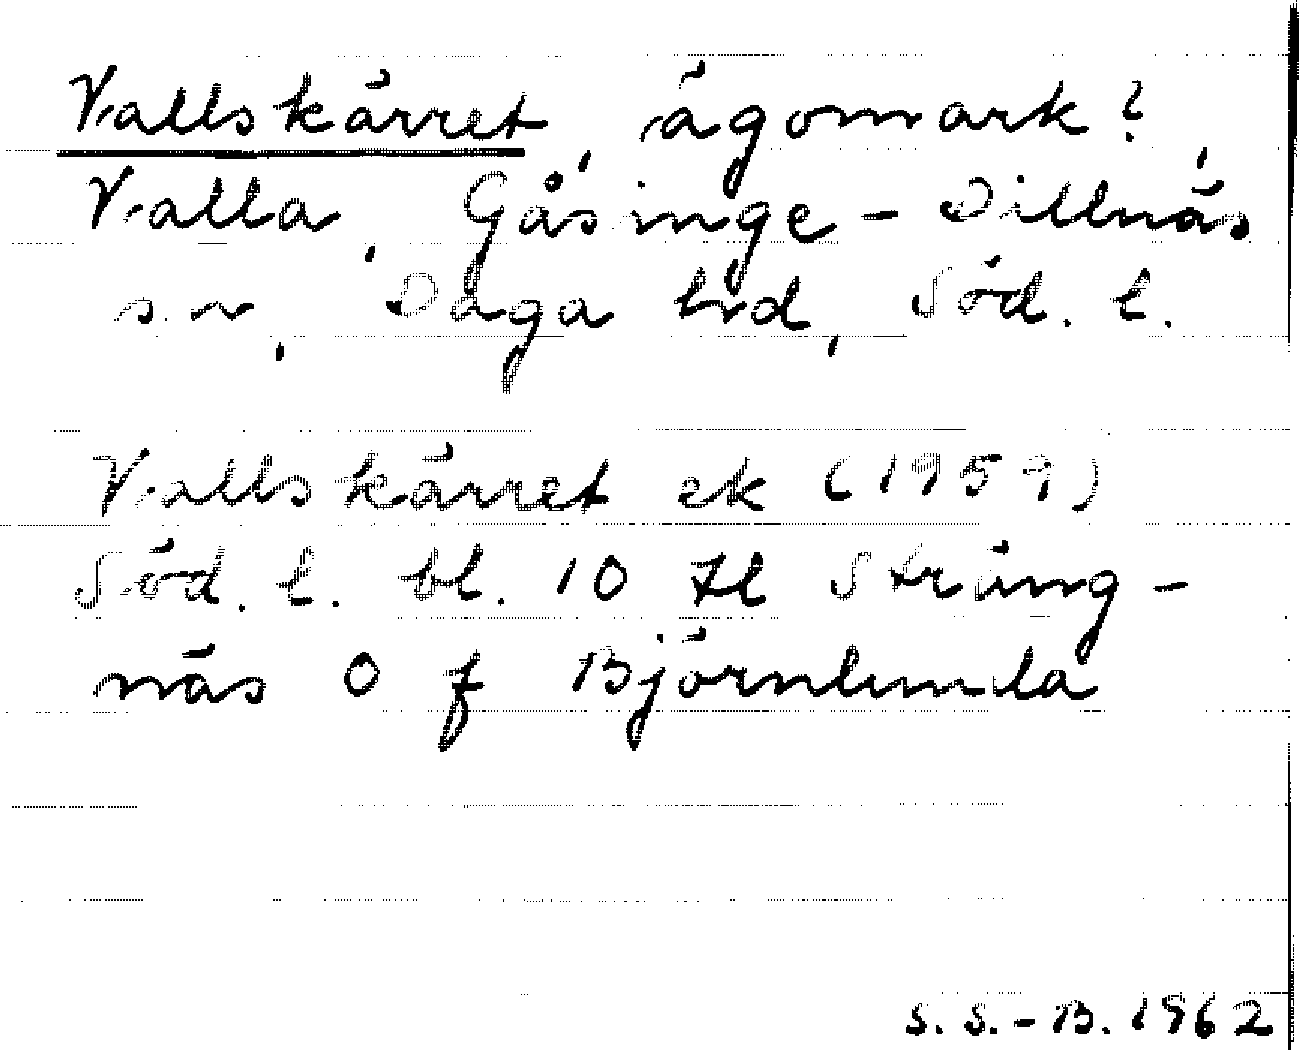 Vallskärret, ägomark?,
Valla, Gåsinge-Dillnäs
sn, Daga hrd, Söd. l.
Vallskärret ek (1959)
Söd. l. bl. 10 tl Sträng-
näs O f Björnlunda
S. S.-B. 1962